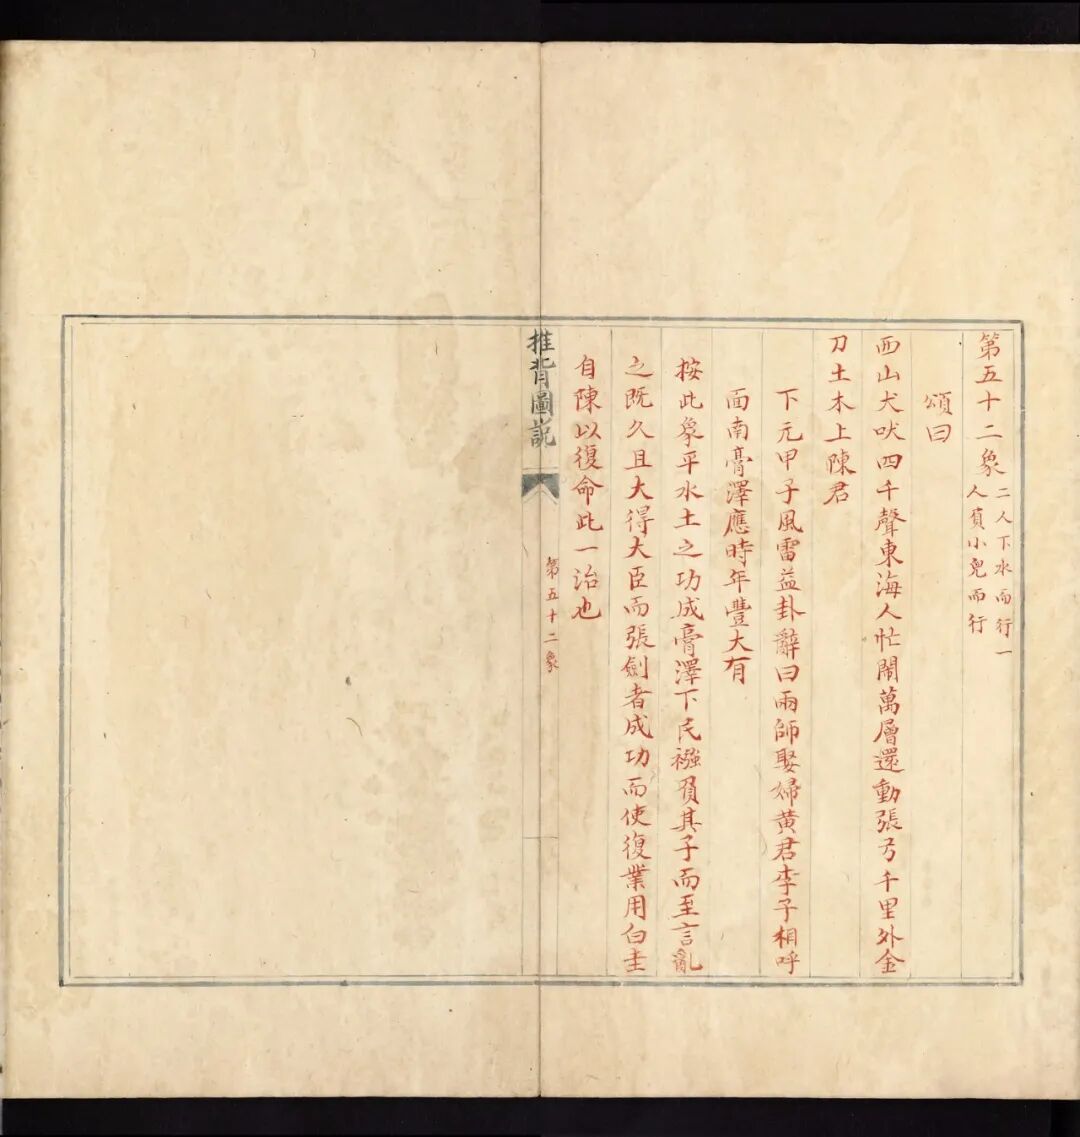 第五十二象
二人下水而行一
人負小兒而行
頌曰
西山犬吠四千聲東海人忙鬧萬層還動張弓千里外金
刀土木上陳君
下元甲子風雷益卦辭曰雨師娶婦黄君李子相呼
面南膏澤應時年豐大有
按此象平水土之功成膏澤下民襁負其子而至言亂
之既久且大得大臣而張劍者成功而使復業用白圭
自陳以復命此一治也
推背圖説
第五十二象